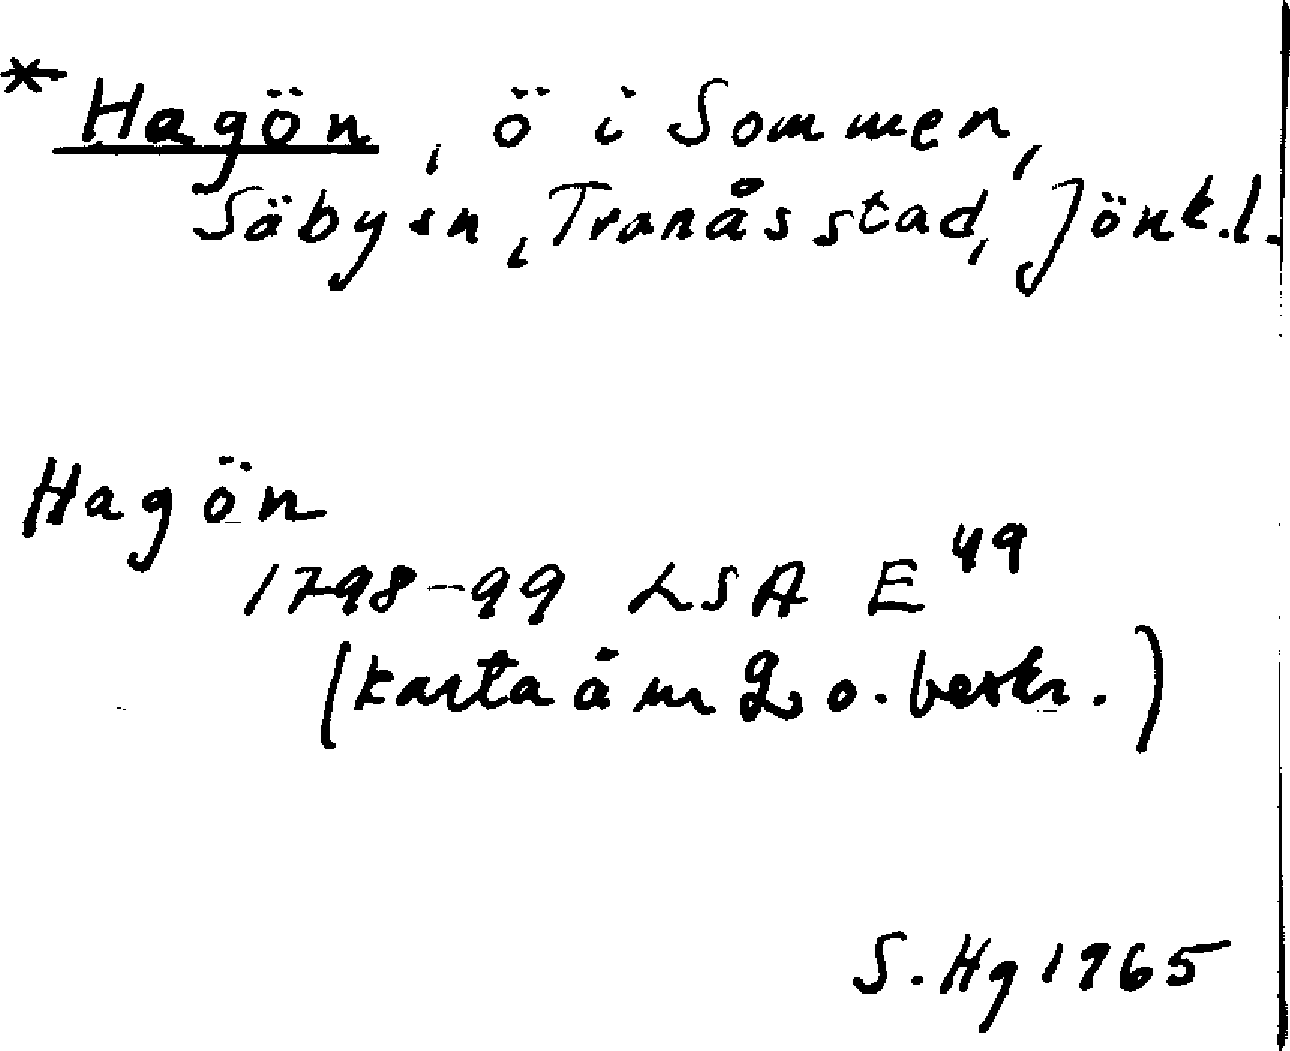 * Hagön, ö i Sommen,
Säby sn, Tranås stad, Jönk.l.
Hagön
1798-99 LSA E 49
(karta äm 2 o. beskr.)
S. Hg 1965